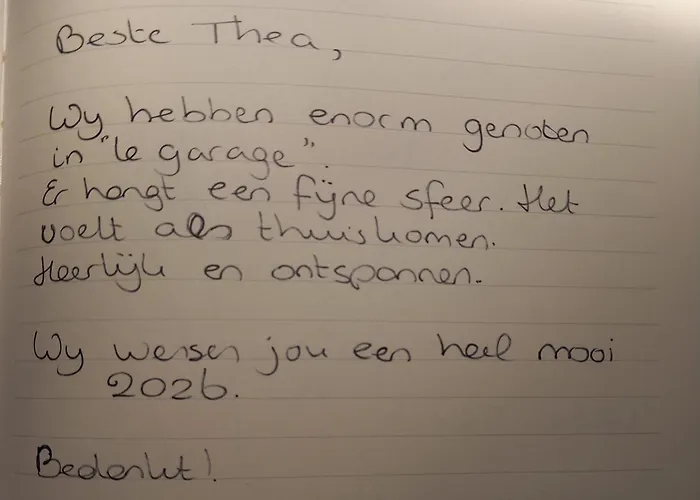 Beste Thea,
Wy hebben enorm genoten
in "le garage".
Er hangt een fijne sfeer. Het
voelt als thuiskomen.
Heerlijk en ontspannen.
Wy wensen jou een heel mooi
2026.
Bedankt!